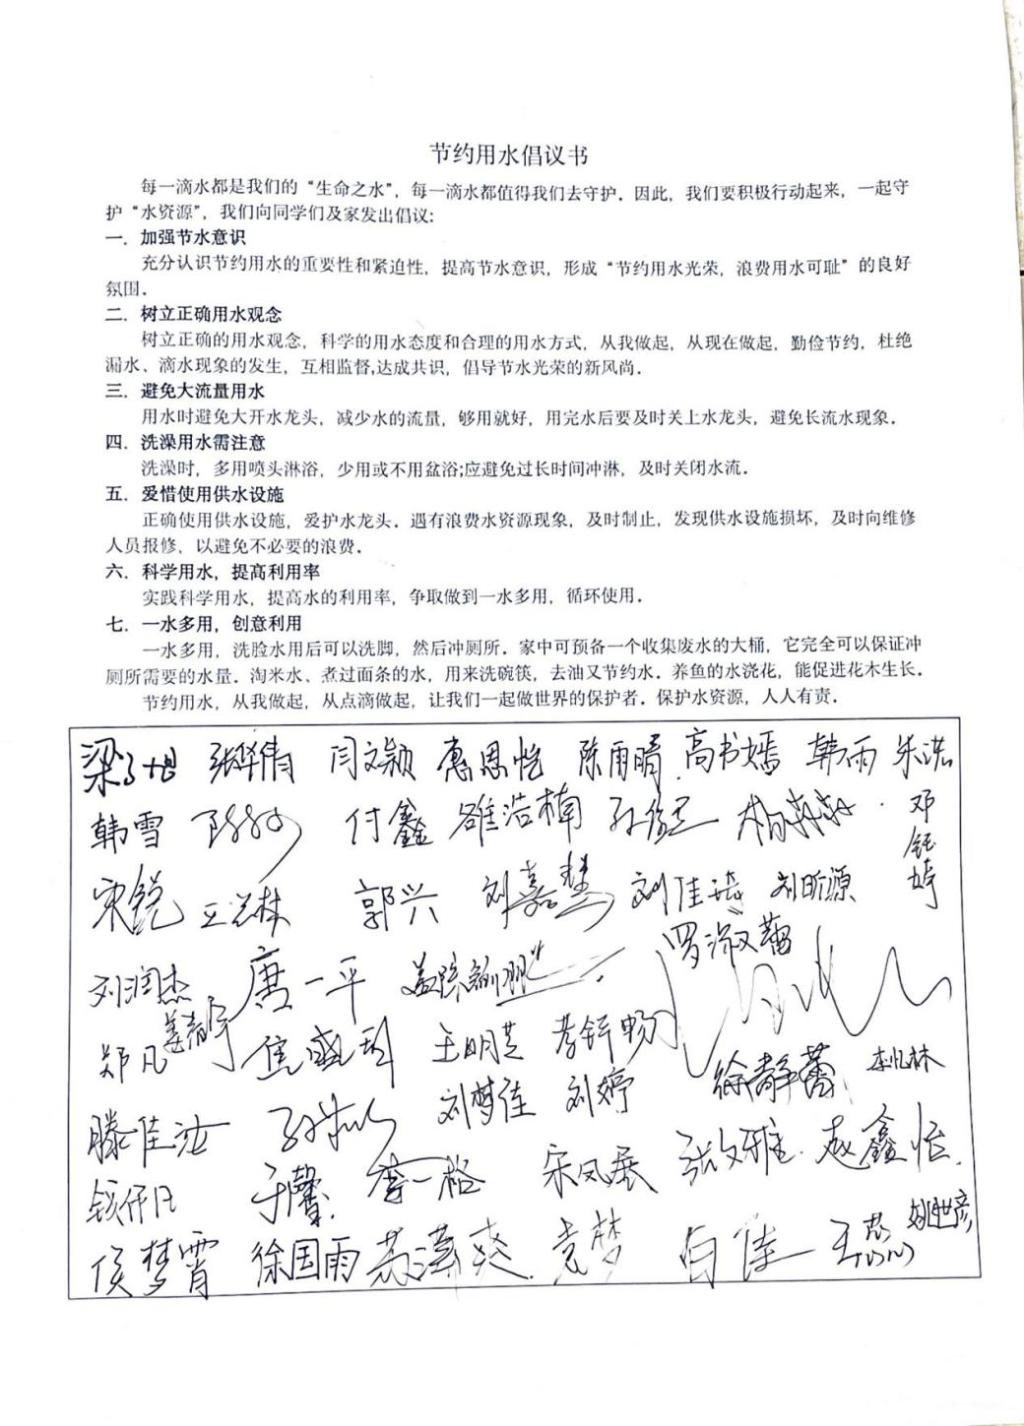 节约用水倡议书
每一滴水都是我们的“生命之水”，每一滴水都值得我们去守护．因此，我们要积极行动起来，一起守
护“水资源”，我们向同学们及家发出倡议：
一．加强节水意识
充分认识节约用水的重要性和紧迫性，提高节水意识，形成“节约用水光荣，浪费用水可耻”的良好
氛围．
二．树立正确用水观念
树立正确的用水观念，科学的用水态度和合理的用水方式，从我做起，从现在做起，勤俭节约，杜绝
漏水、滴水现象的发生，互相监督,达成共识，倡导节水光荣的新风尚．
三．避免大流量用水
用水时避免大开水龙头，减少水的流量，够用就好，用完水后要及时关上水龙头，避免长流水现象．
四．洗澡用水需注意
洗澡时，多用喷头淋浴，少用或不用盆浴;应避免过长时间冲淋，及时关闭水流．
五．爱惜使用供水设施
正确使用供水设施，爱护水龙头．遇有浪费水资源现象，及时制止，发现供水设施损坏，及时向维修
人员报修，以避免不必要的浪费．
六．科学用水，提高利用率
实践科学用水，提高水的利用率，争取做到一水多用，循环使用．
七．一水多用，创意利用
一水多用，洗脸水用后可以洗脚，然后冲厕所．家中可预备一个收集废水的大桶，它完全可以保证冲
厕所需要的水量．淘米水、煮过面条的水，用来洗碗筷，去油又节约水．养鱼的水浇花，能促进花木生长．
节约用水，从我做起，从点滴做起，让我们一起做世界的保护者．保护水资源，人人有责．
张华倩 闫文颖 惠思恺 陈雨晴 高书嫣 韩雨 朱浩
韩雪 付鑫 雒浩楠 邓钰婷
宋锐 郭兴 刘嘉慧 刘佳琦 刘昕源
刘润杰 唐一平 罗淑蕾
郑凡 王明芝 李轩畅
滕佳汝 刘梦佳 刘婷 徐静蕾
钱仟凡 于馨 李一格 宋凤展 张文雅 赵鑫怡
侯梦霄 徐国雨 苏潇爽 袁梦 白佳 姚世彦